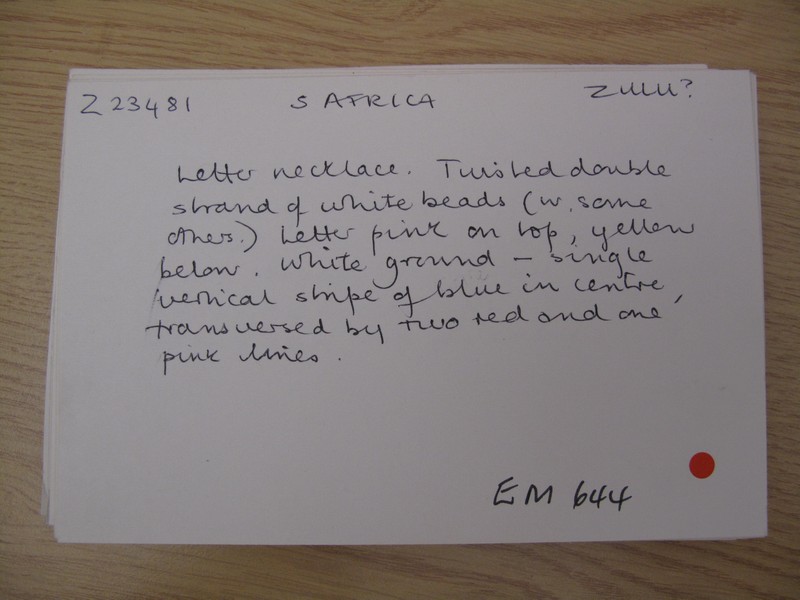 Z 23481 S AFRICA ZULU?
Letter necklace. Twisted double
strand of white beads (w. some
others.) Letter pink on top, yellow
below. White ground – single
vertical stripe of blue in centre,
transversed by two red and one
pink lines.
EM 644